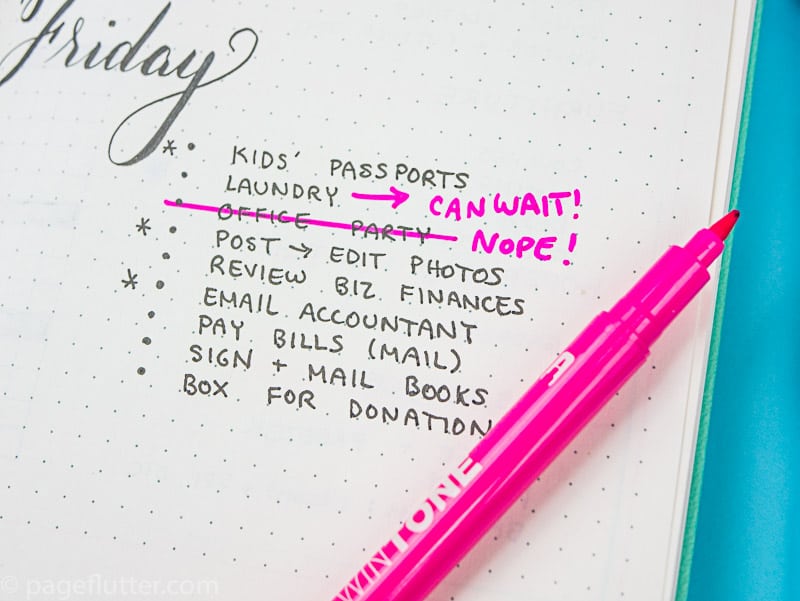 Friday
* • KIDS' PASSPORTS
• LAUNDRY → CAN WAIT!
• OFFICE PARTY NOPE!
* • POST → EDIT PHOTOS
• REVIEW BIZ FINANCES
* • EMAIL ACCOUNTANT
• PAY BILLS (MAIL)
• SIGN + MAIL BOOKS
• BOX FOR DONATION
WINTONE
© pageflutter.com